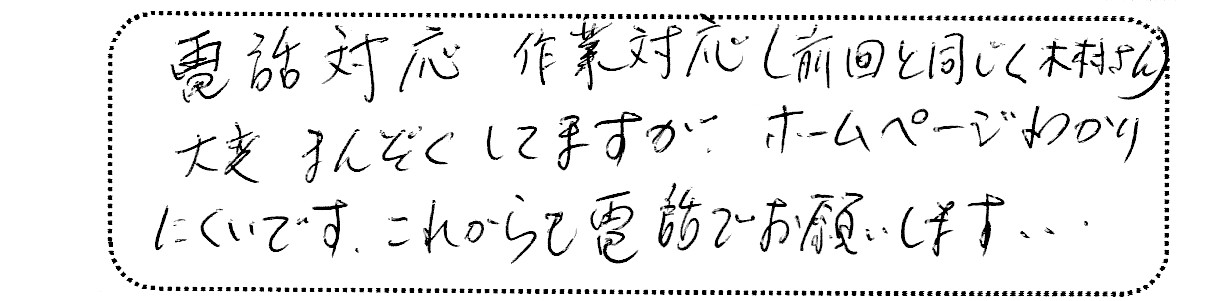 電話対応 作業対応(前回と同じく木村さん)
大変まんぞくしてますが、ホームページわかり
にくいです、これからも電話でお願いします...